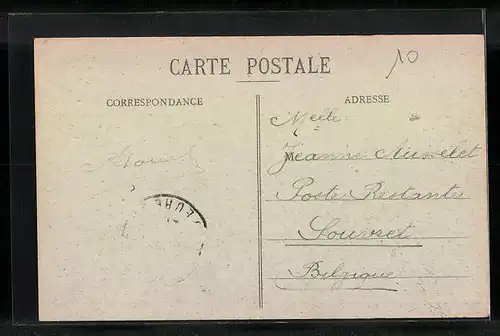 10
CARTE POSTALE
CORRESPONDANCE
ADRESSE
Melle
M Jeanne
Poste Restante
Souvret
Belgique